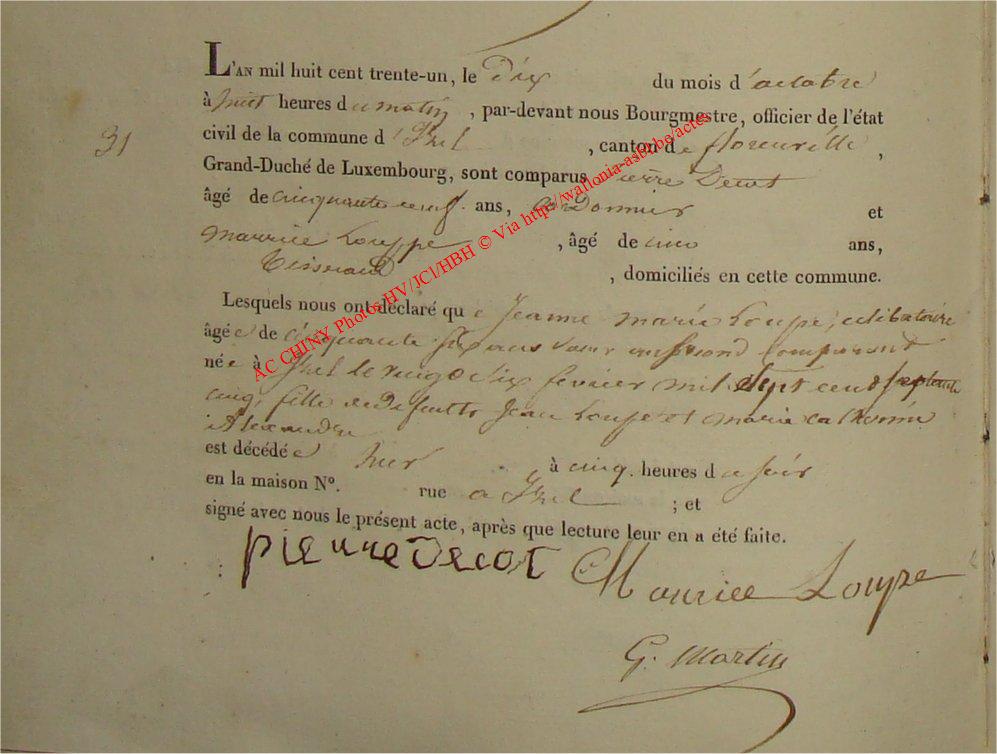 L'AN mil huit cent trente-un, le Dix du mois d'octobre
à huit heures du matin, par-devant nous Bourgmestre, officier de l'état
31
civil de la commune d'Izel, canton de florenville,
Grand-Duché de Luxembourg, sont comparus pierre Decot
âgé de cinquante neuf ans, cordonnier et
maurice Louppe, âgé de ans,
tisserand, domiciliés en cette commune.
Lesquels nous ont déclaré que Jeanne marie Loupe, celibataire
âgée de cinquante six ans soeur au second Comparant
née à Izel le vingt six fevrier mil sept cent septante
cinq, fille de defunts Jean Loupe et marie catherine
Alexandre
est décédée hier à cinq heures du soir
en la maison N°. rue a Izel ; et
signé avec nous le présent acte, après que lecture leur en a été faite.
pierre Decot Maurice Loupe
G. Martin
AC CHINY Photos HV/JCl/HBH © Via http://wallonia-asbl.be/actes